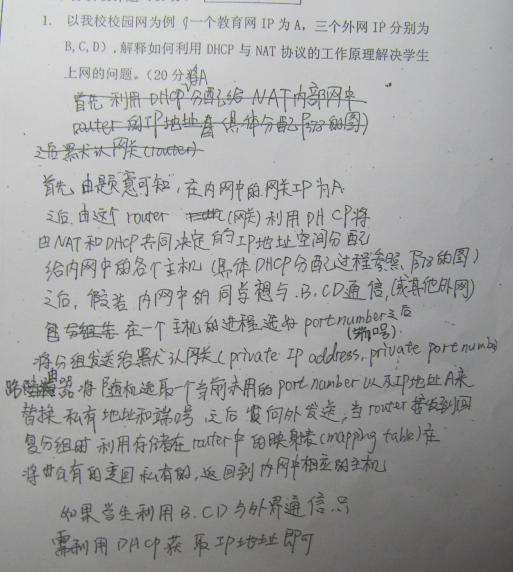 1. 以我校校园网为例(一个教育网 IP 为 A，三个外网 IP 分别为
B,C,D)，解释如何利用 DHCP 与 NAT 协议的工作原理解决学生
上网的问题。(20 分)
将A
首先 利用 DHCP 分配给 NAT 内部网中
router 的IP地址 (具体分配 P373的图)
之后默认网关(router)
首先 由题意可知，在内网中的网关IP为A.
之后 由这个 router (网关) 利用 DHCP将
由NAT和DHCP共同决定的IP地址空间分配
给内网中的各个主机 (具体DHCP分配过程参照P373的图)
之后，假装内网中的同学想与 B.CD通信,(或其他外网)
在一个主机的进程选好 port number之后
(端口号).
将分组发送给默认网关(private IP address, private port number)
路由器将随机选取一个当前未用的port number以及IP地址A来
替换私有地址和端口号 之后 向外发送，当router接收到回
复分组时 利用存储在router中的映射表(mapping table)在
将公有的变回私有的，返回到内网中相应的主机
如果学生利用 B.CD与外界通信只
需利用 DHCP获取IP地址即可